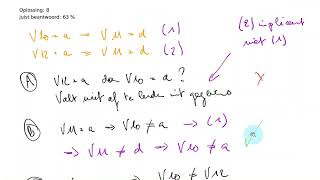 Oplossing: B
Juist beantwoord: 63 %
V10 = a → V11 = d (1)
V12 = a → V11 = d (2)
(2) impliceert niet (1)
(A) V12 = a dan V10 = a ?
Valt niet af te leiden uit gegevens
(B) V11 = a → V10 ≠ a → (1)
→ V11 ≠ d → V10 ≠ a
→ V10 ≠ V12